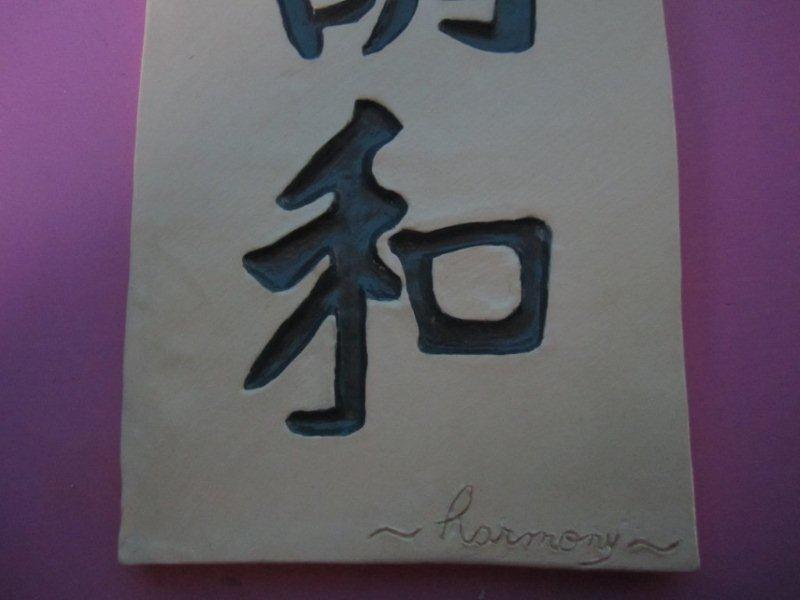 和
~ harmony ~